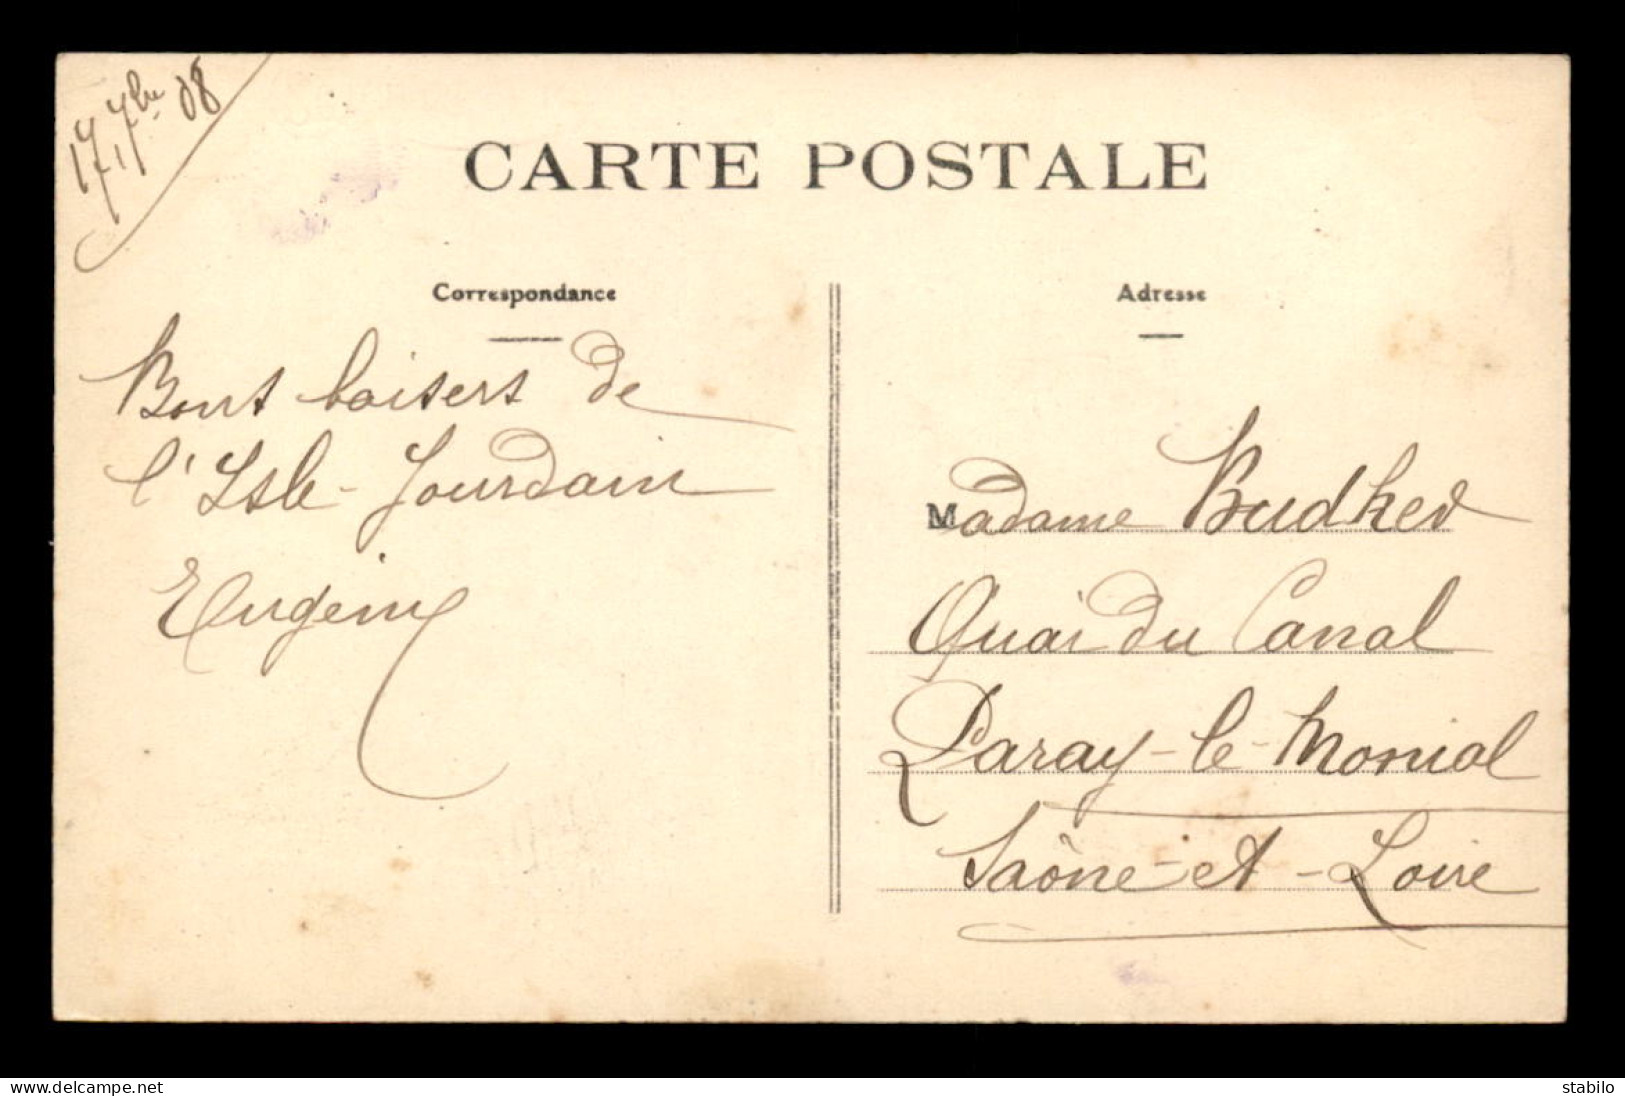 17 7bre 08
CARTE POSTALE
Correspondance
Bons baisers de
l'Isle-Jourdain
Eugénie
Adresse
Madame
Quai du Canal
Paray-le-Monial
Saône-et-Loire
www.delcampe.net
stabilo